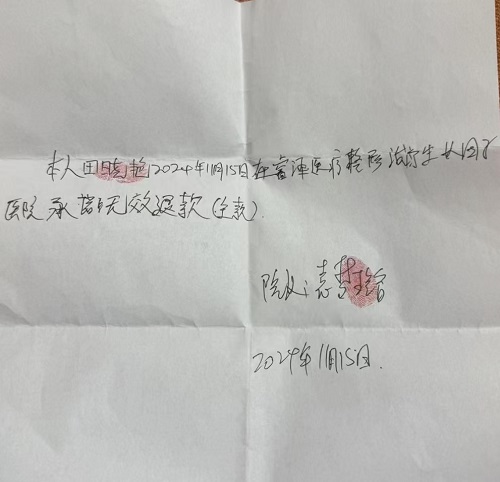 本人田晓艳2024年11月15日在富泽医疗整形治疗生
医院承诺无效退款(全款).
院长:
2024年11月15日.